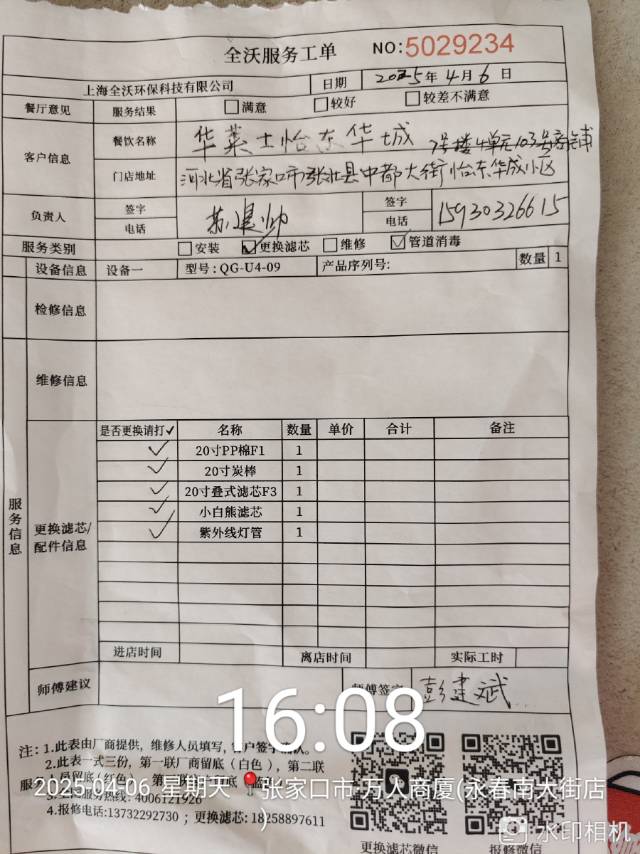 全沃服务工单 NO:5029234
上海全沃环保科技有限公司 日期 2025年4月6日
餐厅意见 服务结果 满意 较好 较差不满意
客户信息 餐饮名称 华莱士怡东华城 7号楼4单元103号商铺
门店地址 河北省张家口市张北县中都大街怡东华城小区
负责人 签字 电话 苏建帅 签字 电话 15930326615
服务类别 安装 ✓更换滤芯 维修 ✓管道消毒
设备信息 设备一 型号:QG-U4-09 产品序列号: 数量 1
检修信息
维修信息
服务信息
更换滤芯/配件信息
是否更换请打✓ 名称 数量 单价 合计 备注
✓ 20寸PP棉F1 1
✓ 20寸炭棒 1
✓ 20寸叠式滤芯F3 1
✓ 小白熊滤芯 1
✓ 紫外线灯管 1
进店时间 离店时间 实际工时
师傅建议 师傅签字 彭建斌
16:08
注:1.此表由厂商提供，维修人员填写，客户签字确认。
2.此表一式三份，第一联厂商留底(白色)，第二联
服务商留底(红色)
2025-04-06 星期天 张家口市·万人商厦(永春南大街店)
热线: 4006121928
4.报修电话:13732292730 ; 更换滤芯: 18258897611
更换滤芯微信 报修微信
水印相机